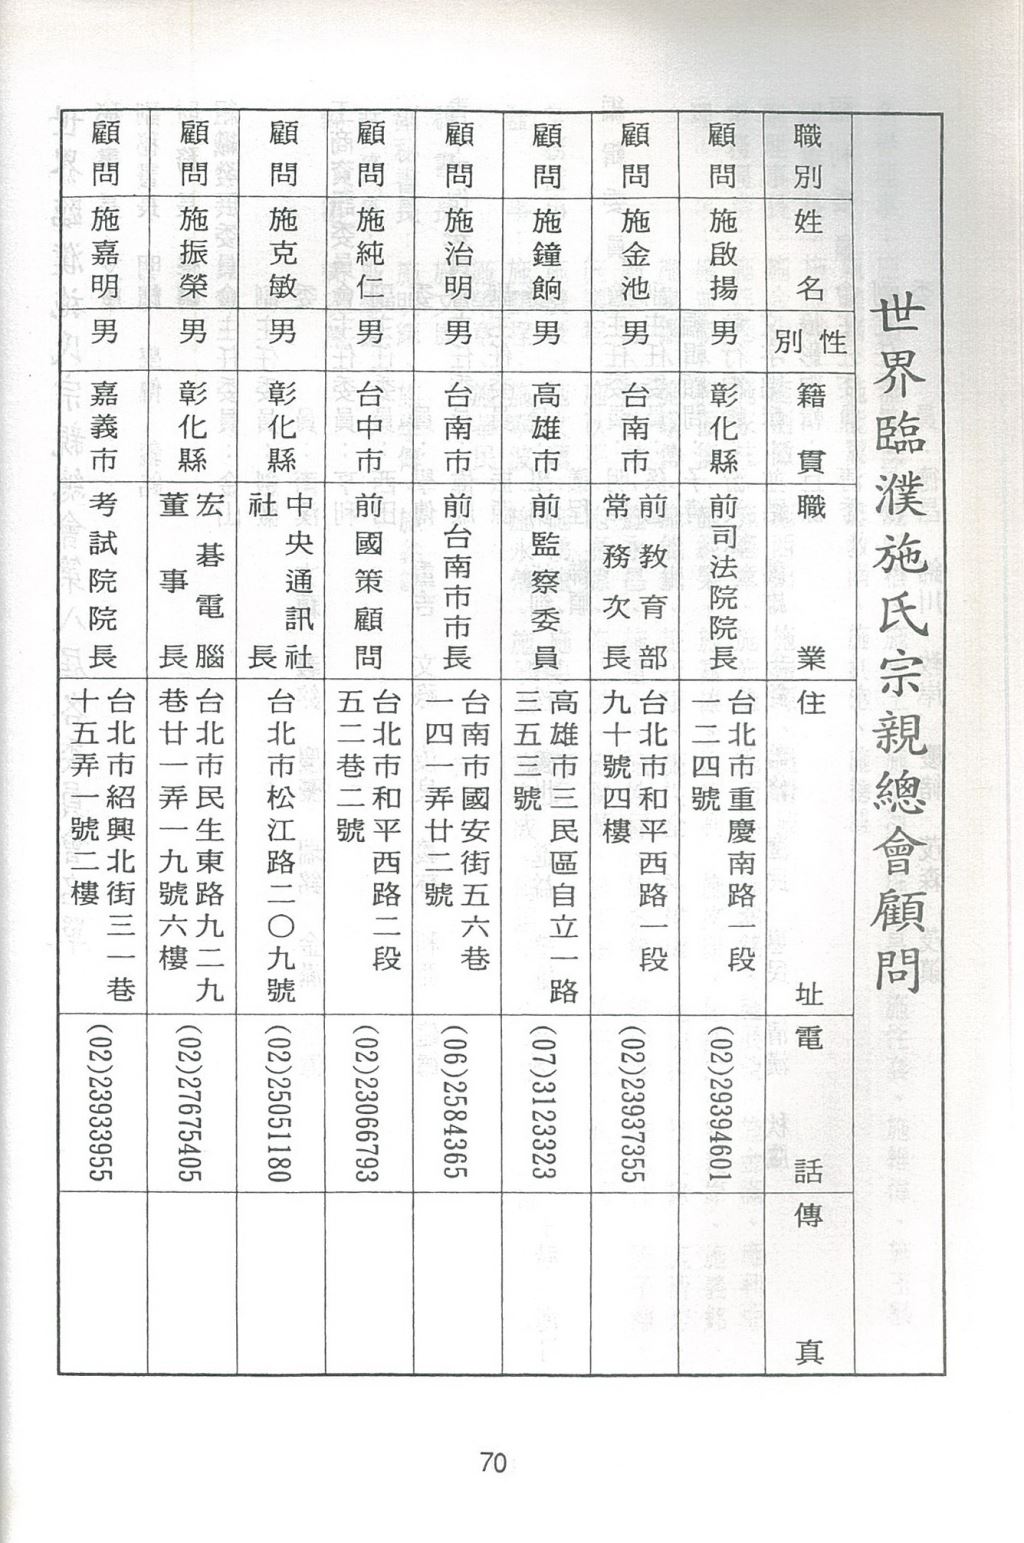 世界臨濮施氏宗親總會顧問
職別 姓名 性別 籍貫 職業 住址 電話 傳真
顧問 施啟揚 男 彰化縣 前司法院院長 台北市重慶南路一段一二四號 (02)29394601
顧問 施金池 男 台南市 前教育部常務次長 台北市和平西路一段九十號四樓 (02)23937355
顧問 施鐘餉 男 高雄市 前監察委員 高雄市三民區自立一路三五三號 (07)3123323
顧問 施治明 男 台南市 前台南市市長 台南市國安街五六巷一四弄廿二號 (06)2584365
顧問 施純仁 男 台中市 前國策顧問 台北市和平西路二段五二巷二號 (02)23066793
顧問 施克敏 男 彰化縣 中央通訊社社長 台北市松江路二〇九號 (02)25051180
顧問 施振榮 男 彰化縣 宏碁電腦董事長 台北市民生東路九二九巷廿一弄一九號六樓 (02)27675405
顧問 施嘉明 男 嘉義市 考試院院長 台北市紹興北街三一巷十五弄一號二樓 (02)23933955
70